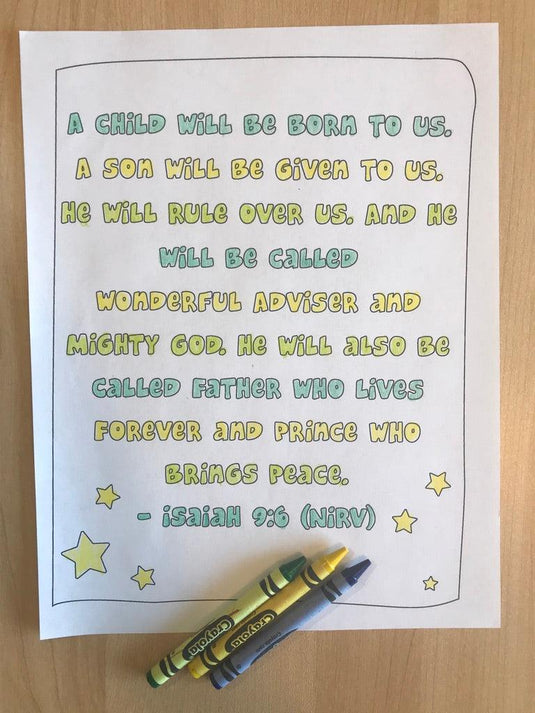 A CHILD WILL BE BORN TO US.
A SON WILL BE GIVEN TO US.
HE WILL RULE OVER US. AND HE
WILL BE CALLED
WONDERFUL ADVISER AND
MIGHTY GOD. HE WILL ALSO BE
CALLED FATHER WHO LIVES
FOREVER AND PRINCE WHO
BRINGS PEACE.
- ISAIAH 9:6 (NIRV)
Crayola
Crayola
Crayola